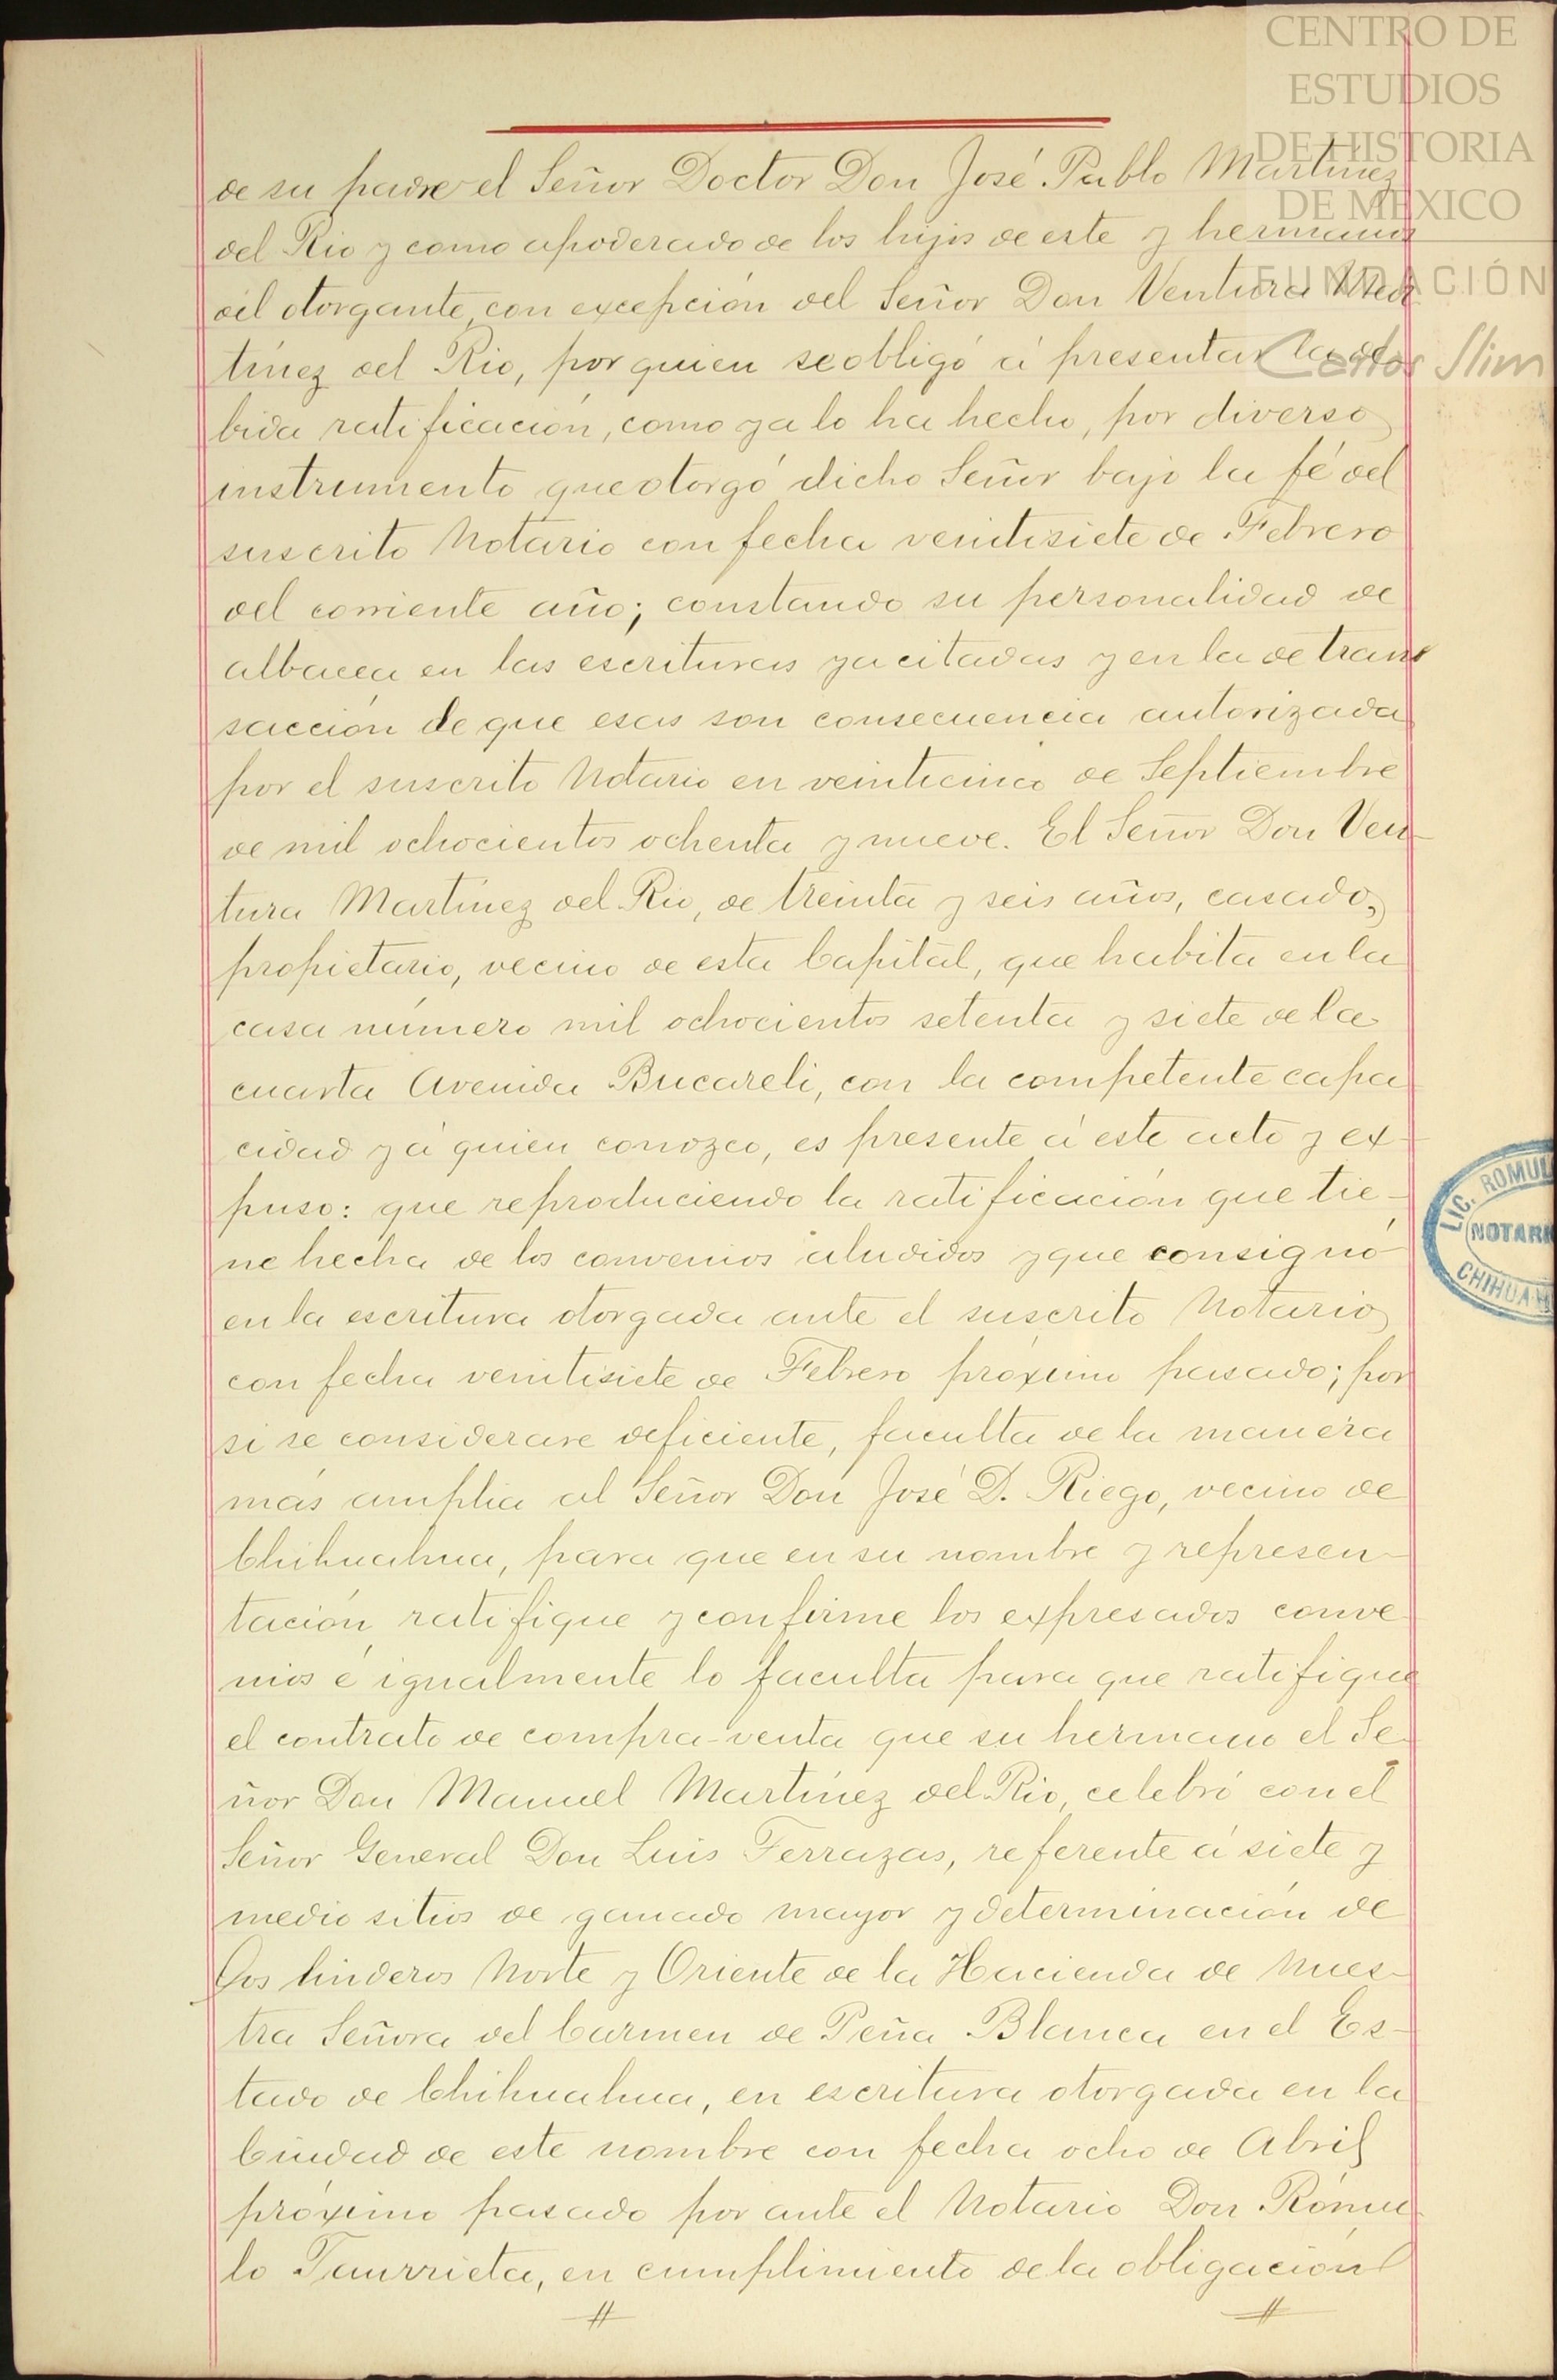 CENTRO DE
ESTUDIOS
DE HISTORIA
DE MÉXICO
FUNDACIÓN
Carlos Slim
de su padre el Señor Doctor Don José Pablo Martínez
del Rio y como apoderado de los hijos de este y hermanos
del otorgante, con excepción del Señor Don Ventura Mar
tínez del Rio, por quien se obligó á presentar la de
bida ratificación, como ya lo ha hecho, por diverso
instrumento que otorgó dicho Señor bajo la fé del
suscrito Notario con fecha veintisiete de Febrero
del corriente año; constando su personalidad de
albacea en las escrituras ya citadas y en la de tran
sacción de que esas son consecuencia autorizada
por el suscrito Notario en veinticinco de Septiembre
de mil ochocientos ochenta y nueve. El Señor Don Ven-
tura Martínez del Rio, de treinta y seis años, casado,
propietario, vecino de esta Capital, que habita en la
casa número mil ochocientos setenta y siete de la
cuarta Avenida Bucareli, con la competente capa
cidad y á quien conozco, es presente á este acto y ex-
puso: que reproduciendo la ratificación que tie-
ne hecha de los convenios aludidos y que consignó
en la escritura otorgada ante el suscrito Notario
con fecha veintisiete de Febrero próximo pasado; por
si se considerare deficiente, faculta de la manera
más amplia al Señor Don José D. Riego, vecino de
Chihuahua, para que en su nombre y represen-
tación ratifique y confirme los expresados conve
nios é igualmente lo faculta para que ratifique
el contrato de compra-venta que su hermano el Se-
ñor Don Manuel Martínez del Rio, celebró con el
Señor General Don Luis Terrazas, referente á siete y
medio sitios de ganado mayor y determinación de
los linderos Norte y Oriente de la Hacienda de Nues-
tra Señora del Carmen de Peña Blanca en el Es-
tado de Chihuahua, en escritura otorgada en la
Ciudad de este nombre con fecha ocho de Abril
próximo pasado por ante el Notario Don Rómu
lo Jaurrieta, en cumplimiento de la obligación
LIC. ROMUL
NOTARI
CHIHUAH